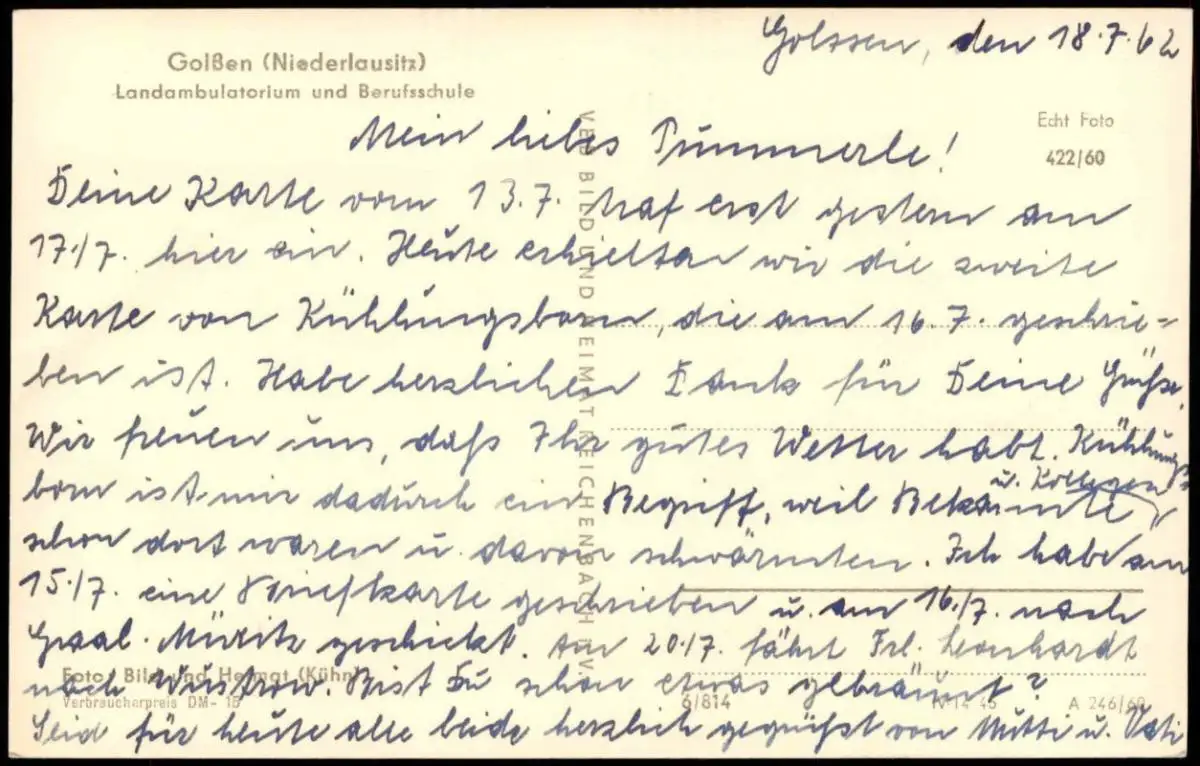 Golssen, den 18.7.62
Golßen (Niederlausitz)
Landambulatorium und Berufsschule
Echt Foto
422/60
Mein liebes Pummerle!
Deine Karte vom 13.7. traf erst gestern am
17./7. hier ein. Heute erhielten wir die zweite
Karte von Kühlungsborn, die am 16.7. geschrie=
ben ist. Habe herzlichen Dank für Deine Grüße.
Wir freuen uns, daß Ihr gutes Wetter habt. Kühlungs=
born ist mir dadurch ein Begriff, weil Bekannte
u. Kollegen
schon dort waren u. davon schwärmten. Ich habe am
15./7. eine Briefkarte geschrieben u. am 16./7. nach
Graal-Müritz geschickt. Am 20./7. fährt Frl. Leonhardt
nach Wustrow. Bist Du schon etwas gebräunt?
Seid für heute alle beide herzlich gegrüßt von Mutti u. Vati
VEB BILD UND HEIMAT REICHENBACH I. V.
Foto: Bild und Heimat (Kühn)
Verbraucherpreis DM -,15
6/814
IV 14 45
A 246/60